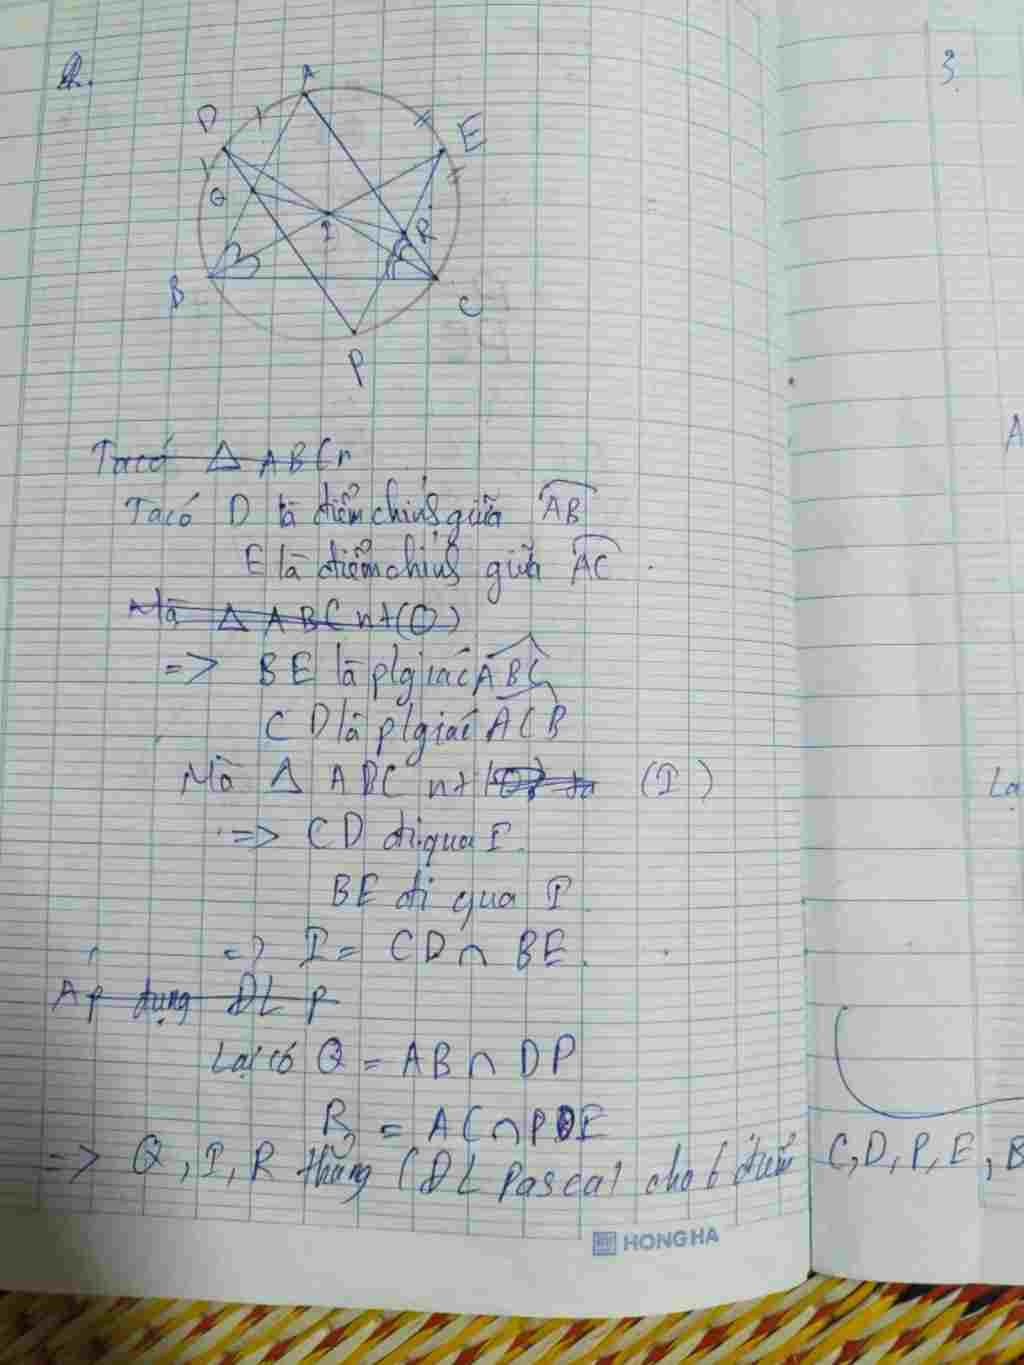 2.
3.
A
D
E
Q
I
R
B
C
P
Ta có △ ABC n
Ta có D là điểm chính giữa AB
E là điểm chính giữa AC.
A
Mà △ ABC nt (O)
=> BE là p/giác ABC
CD là p/giác ACB
Mà △ ABC nt (I)
La
=> CD đi qua I.
BE đi qua I.
=> I = CD ∩ BE.
Áp dụng ĐL P
Lại có Q = AB ∩ DP
R = AC ∩ PE
=> Q, I, R thẳng (ĐL Pascal cho 6 điểm C, D, P, E, B
HONG HA